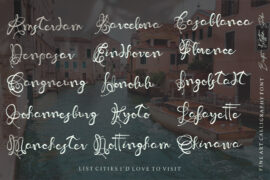 Amsterdam Barcelona Casablanca
Denpasar Eindhoven Florence
Honolulu Ingolstadt
Johannesburg Kyoto Lafayette
Manchester Nottingham Okinawa
LIST CITIES I'D LOVE TO VISIT
FINE ART CALLIGRAPHY FONT